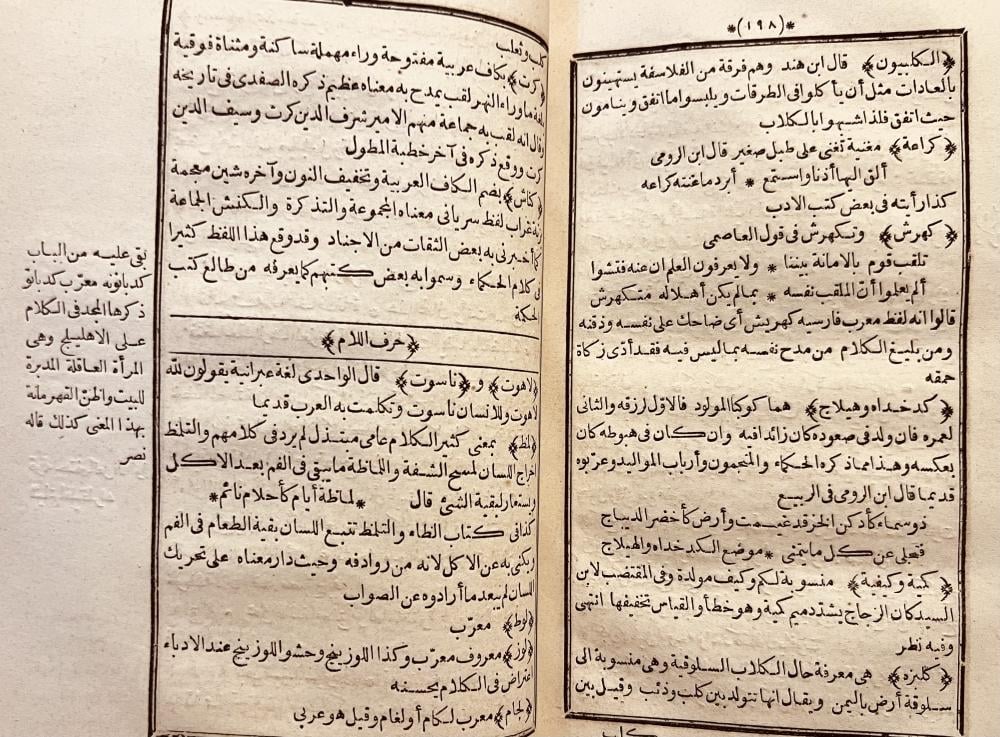 *(١٩٨)*
﴿الكلبيون﴾ قال ابن هند وهم فرقة من الفلاسفة يستهينون
بالعادات مثل أن يأكلوا في الطرقات ويلبسوا ما اتفق وينامون
حيث اتفق فلذا شبهوا بالكلاب
﴿كراعة﴾ مغنية تغنى على طبل صغير قال ابن الرومى
ألق اليها أذنا واستمع * أبرد ما غنته كراعه
كذا رأيته فى بعض كتب الادب
﴿كهرش﴾ وتكهرش فى قول العاصمى
تلقب قوم بالامانة بيننا * ولا يعرفون العلم ان عنه فتشوا
ألم يعلموا أن الملقب نفسه * بما لم يكن أهلا له متكهرش
قالوا انه لفظ معرب فارسيه كهريش أى ضاحك على نفسه وذقنه
ومن بليغ الكلام من مدح نفسه بما ليس فيه فقد أدى زكاة
حمقه
﴿كدخداه وهيلاج﴾ هما كوكبا المولود فالاول لرزقه والثانى
لعمره فان ولد فى صعوده كان زائدا فيه وان كان فى هبوطه كان
بعكسه وهذا مما ذكره الحكماء والمنجمون وأرباب المواليد وعربوه
قديما قال ابن الرومى فى الربيع
ذو سماء كأدكن الخز قد غيمت وأرض كأخضر الديباج
فتجلى عن كل ما يتمنى * موضع الكدخداه والهيلاج
﴿كمية وكيفية﴾ منسوبة لكم وكيف مولدة وفى المقتضب لابن
السيد كان الزجاج يشدد ميم كمية وهو خطأ والقياس تخفيفها انتهى
وفيه نظر
﴿كلبزه﴾ هى معرفة حال الكلاب السلوقية وهى منسوبة الى
سلوقة أرض باليمن ويقال انها تتولد بين كلب وذئب وقيل بين
كلب وثعلب
﴿كرت﴾ بكاف عربية مفتوحة وراء مهملة ساكنة ومثناة فوقية
بلغة ما وراء النهر لقب يمدح به معناه عظيم ذكره الصفدى فى تاريخه
وقال انه لقب به جماعة منهم الامير شرف الدين كرت وسيف الدين
كرت ووقع ذكره فى آخر خطبة المطول
﴿كناش﴾ بضم الكاف العربية وتخفيف النون وآخره شين معجمة
زنة غراب لفظ سريانى معناه المجموعة والتذكرة والكنش الجماعة
كما أخبرنى به بعض الثقات من الاجناد وقد وقع هذا اللفظ كثيرا
فى كلام الحكماء وسموا به بعض كتبهم كما يعرفه من طالع كتب
الحكمة
﴿حرف اللام﴾
﴿لاهوت﴾ و ﴿ناسوت﴾ قال الواحدى لغة عبرانية يقولون لله
لاهوت وللانسان ناسوت وتكلمت به العرب قديما
﴿لمظ﴾ بمعنى كثير الكلام عامى مبتذل لم يرد فى كلامهم والتلمظ
اخراج اللسان لمسح الشفة واللماظة ما يبقى فى الفم بعد الاكل
ويستعار لبقية الشئ قال *لماظة أيام كأحلام نائم*
كذا فى كتاب الظاء والتلمظ تتبع اللسان بقية الطعام فى الفم
ويكنى به عن الاكل لانه من روادفه وحيث دار معناه على تحريك
اللسان لم يبعد ما أرادوه عن الصواب
﴿لوط﴾ معرب
﴿لوز﴾ معروف معرب وكذا اللوزينج وحشو اللوزينج عند الادباء
اعتراض فى الكلام يحسنه
﴿لجام﴾ معرب لكام أو لغام وقيل هو عربى
بقى عليه من الباب
كدبانويه معرب كدبانو
ذكرها المجد فى الكلام
على الاهليلج وهى
المرأة العاقلة المدبرة
للبيت والظن القهرمانة
بهذا المعنى كذلك قاله
نصر
كلب